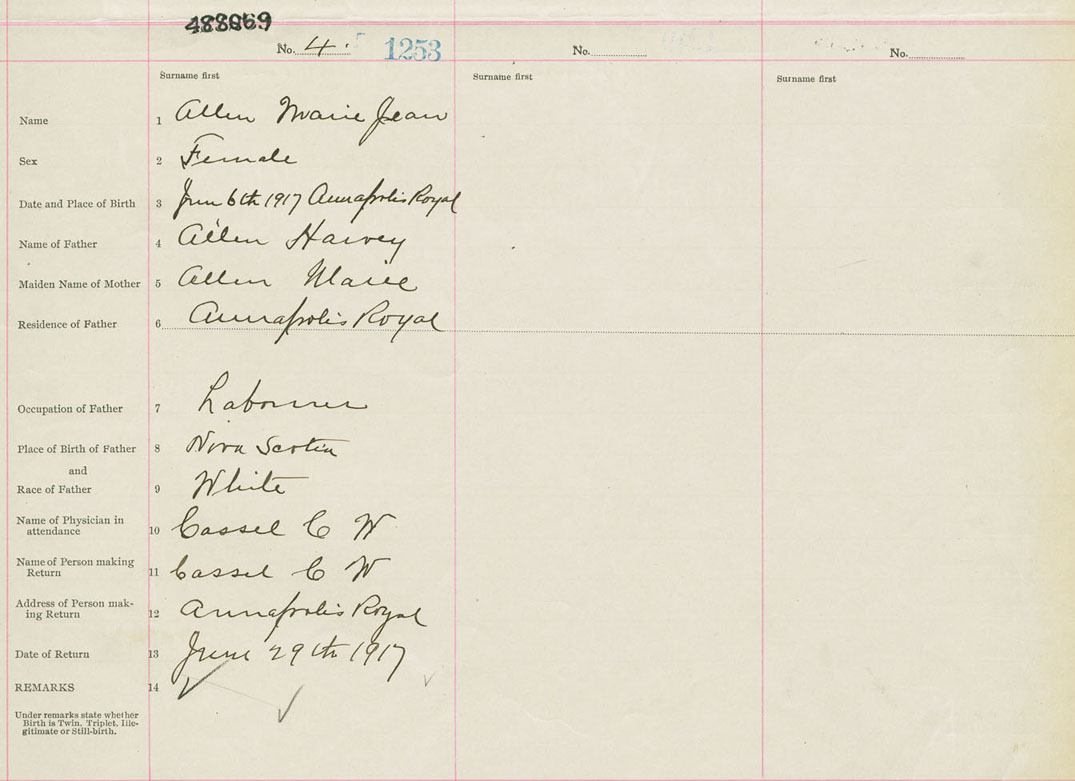 488869
No. 4. 1253
No.
No.
Surname first
Surname first
Surname first
Name 1 Allen Marie Jean
Sex 2 Female
Date and Place of Birth 3 June 6th 1917 Annapolis Royal
Name of Father 4 Allen Harvey
Maiden Name of Mother 5 Allen Marie
Residence of Father 6 Annapolis Royal
Occupation of Father 7 Labourer
Place of Birth of Father 8 Nova Scotia
and
Race of Father 9 White
Name of Physician in
attendance 10 Cassel C W
Name of Person making
Return 11 Cassel C W
Address of Person mak-
ing Return 12 Annapolis Royal
Date of Return 13 June 29th 1917
REMARKS 14
Under remarks state whether
Birth is Twin, Triplet, Ille-
gitimate or Still-birth.